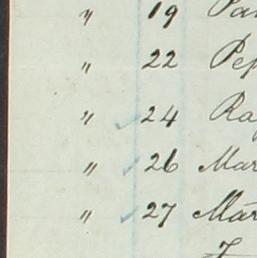 " 19 Pa
" 22 Pep
" ✓ 24 Ra
" ✓ 26 Mar
" ✓ 27 Mar